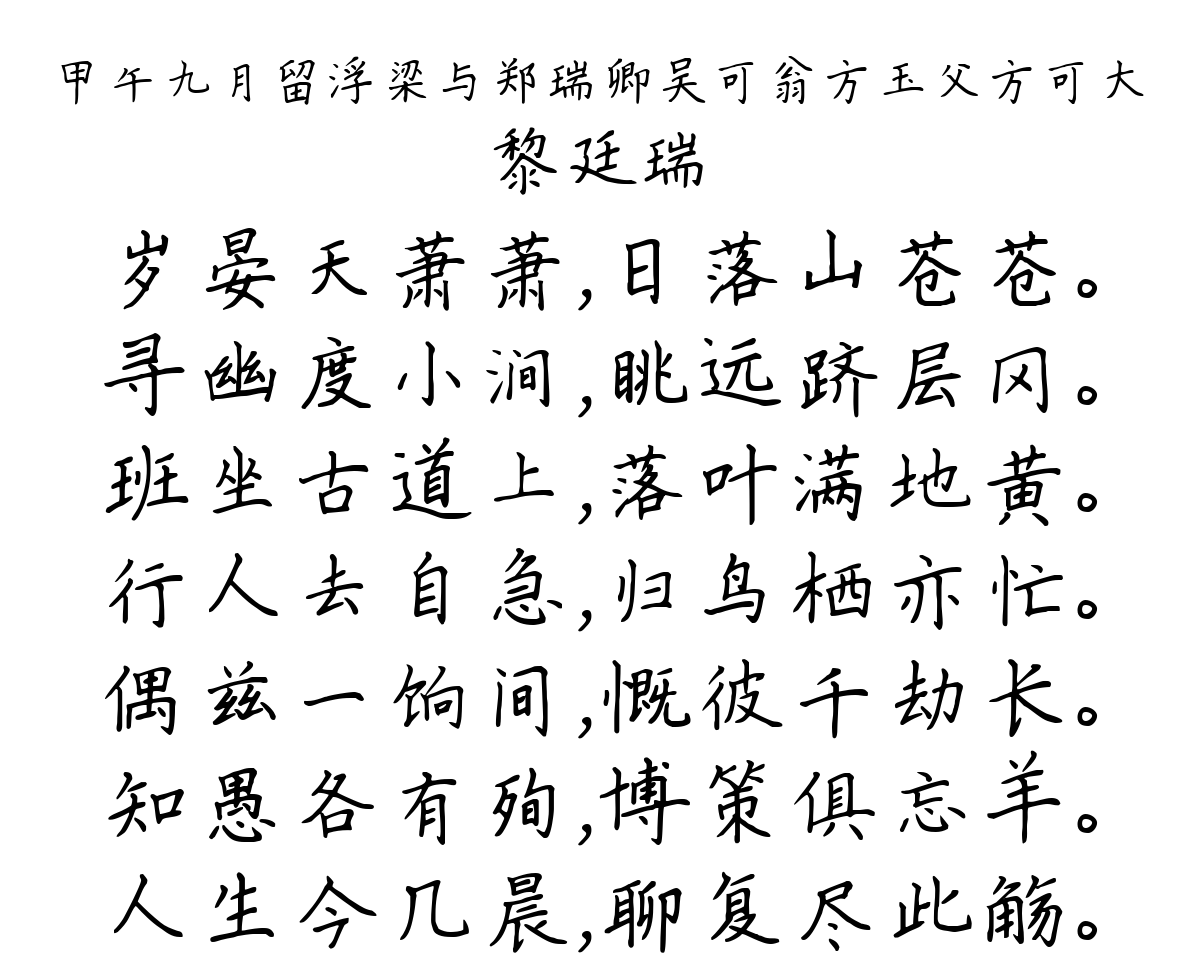 甲午九月留浮梁与郑瑞卿吴可翁方玉父方可大
黎廷瑞
岁晏天萧萧,日落山苍苍。
寻幽度小涧,眺远跻层冈。
班坐古道上,落叶满地黄。
行人去自急,归鸟栖亦忙。
偶兹一饷间,慨彼千劫长。
知愚各有殉,博策俱忘羊。
人生今几晨,聊复尽此觞。